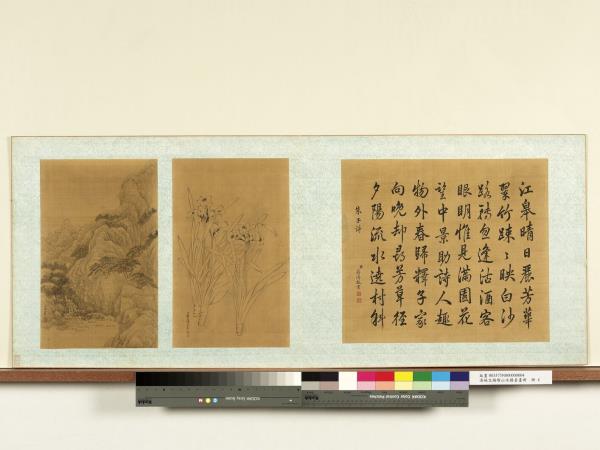 江皋晴日麗芳華
翠竹踈〻映白沙
路轉忽逢沽酒客
眼明惟見滿園花
望中景助詩人趣
物外春歸釋子家
向晚却尋芳草徑
夕陽流水遶村斜
朱子詩
KODAK Gray Scale
KODAK Color Control Patches